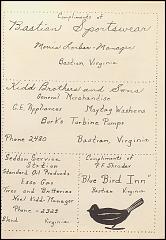 Compliments of
Bastian Sportswear
Manager
Bastian, Virginia
Kidd Brothers and Sons
General Merchandise
G.E. Appliances Maytag Washers
Berks Turbine Pumps
Phone 2480 Bastian, Virginia
Seddon Service
Station
Standard Oil Products
Esso Gas
Tires and Batteries
Kidd Manager
Phone - 2325
Virginia
Compliments of
F. Strader
"Blue Bird Inn"
Bastian Virginia